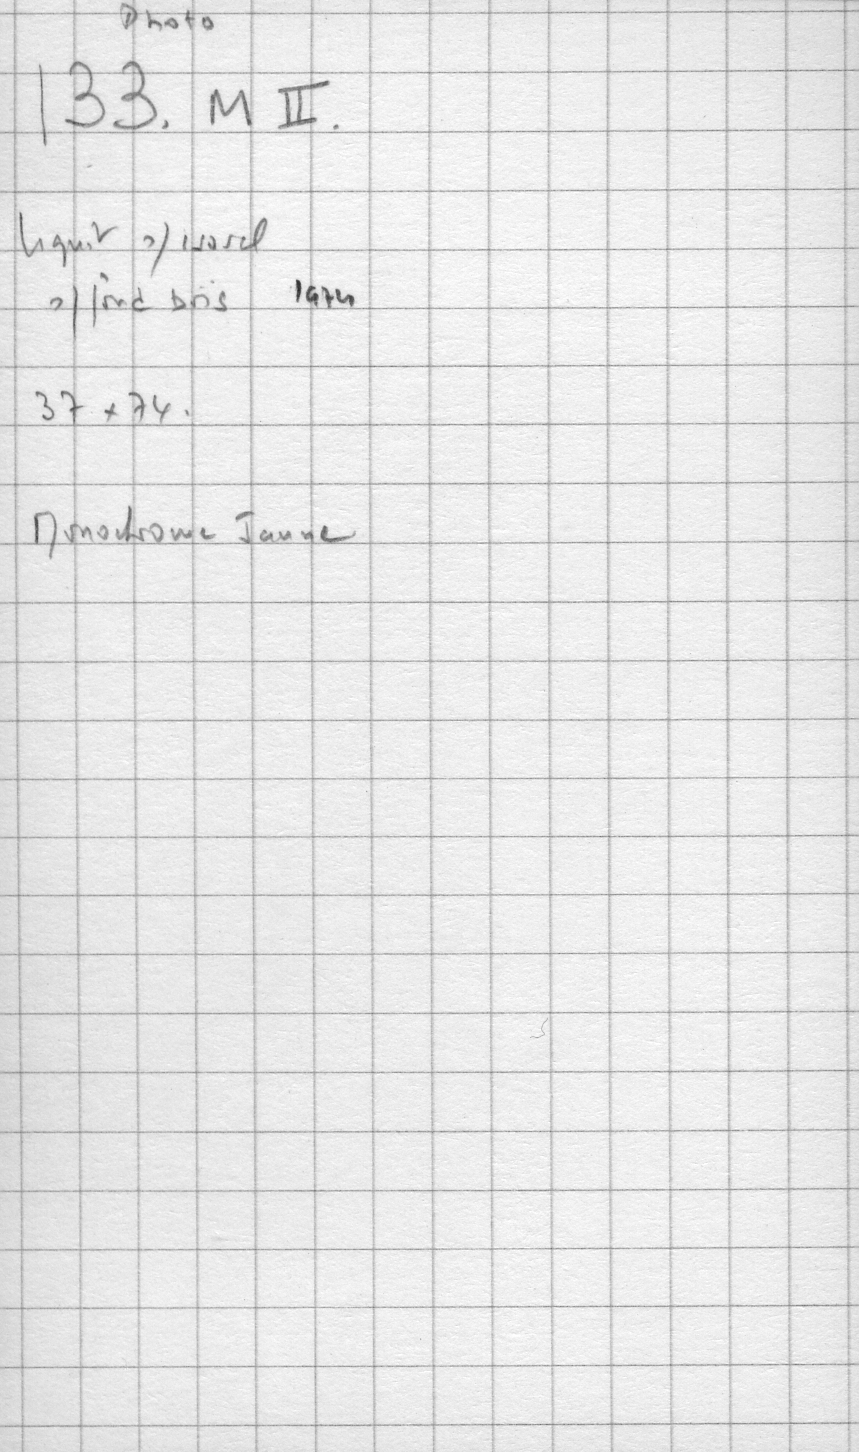 Photo
133. M II.
Liquit s/ isorel
s/ fond bois 1974
37 x 74.
Monochrome Jaune